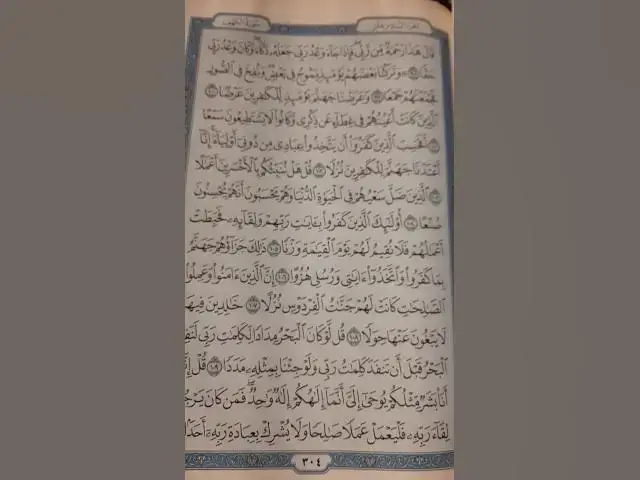 الجزء السادس عشر
سورة الكهف
قَالَ هَٰذَا رَحْمَةٌ مِّن رَّبِّي ۖ فَإِذَا جَاءَ وَعْدُ رَبِّي جَعَلَهُ دَكَّاءَ ۖ وَكَانَ وَعْدُ رَبِّي
حَقًّا ﴿٩٨﴾ وَتَرَكْنَا بَعْضَهُمْ يَوْمَئِذٍ يَمُوجُ فِي بَعْضٍ ۖ وَنُفِخَ فِي الصُّورِ
فَجَمَعْنَاهُمْ جَمْعًا ﴿٩٩﴾ وَعَرَضْنَا جَهَنَّمَ يَوْمَئِذٍ لِّلْكَافِرِينَ عَرْضًا ﴿١٠٠﴾
الَّذِينَ كَانَتْ أَعْيُنُهُمْ فِي غِطَاءٍ عَن ذِكْرِي وَكَانُوا لَا يَسْتَطِيعُونَ سَمْعًا
﴿١٠١﴾ أَفَحَسِبَ الَّذِينَ كَفَرُوا أَن يَتَّخِذُوا عِبَادِي مِن دُونِي أَوْلِيَاءَ ۚ إِنَّا
أَعْتَدْنَا جَهَنَّمَ لِلْكَافِرِينَ نُزُلًا ﴿١٠٢﴾ قُلْ هَلْ نُنَبِّئُكُم بِالْأَخْسَرِينَ أَعْمَالًا
﴿١٠٣﴾ الَّذِينَ ضَلَّ سَعْيُهُمْ فِي الْحَيَاةِ الدُّنْيَا وَهُمْ يَحْسَبُونَ أَنَّهُمْ يُحْسِنُونَ
صُنْعًا ﴿١٠٤﴾ أُولَٰئِكَ الَّذِينَ كَفَرُوا بِآيَاتِ رَبِّهِمْ وَلِقَائِهِ فَحَبِطَتْ
أَعْمَالُهُمْ فَلَا نُقِيمُ لَهُمْ يَوْمَ الْقِيَامَةِ وَزْنًا ﴿١٠٥﴾ ذَٰلِكَ جَزَاؤُهُمْ جَهَنَّمُ
بِمَا كَفَرُوا وَاتَّخَذُوا آيَاتِي وَرُسُلِي هُزُوًا ﴿١٠٦﴾ إِنَّ الَّذِينَ آمَنُوا وَعَمِلُوا
الصَّالِحَاتِ كَانَتْ لَهُمْ جَنَّاتُ الْفِرْدَوْسِ نُزُلًا ﴿١٠٧﴾ خَالِدِينَ فِيهَا
لَا يَبْغُونَ عَنْهَا حِوَلًا ﴿١٠٨﴾ قُل لَّوْ كَانَ الْبَحْرُ مِدَادًا لِّكَلِمَاتِ رَبِّي لَنَفِ
الْبَحْرُ قَبْلَ أَن تَنفَدَ كَلِمَاتُ رَبِّي وَلَوْ جِئْنَا بِمِثْلِهِ مَدَدًا ﴿١٠٩﴾ قُلْ إِنَّ
أَنَا بَشَرٌ مِّثْلُكُمْ يُوحَىٰ إِلَيَّ أَنَّمَا إِلَٰهُكُمْ إِلَٰهٌ وَاحِدٌ ۖ فَمَن كَانَ يَرْجُ
لِقَاءَ رَبِّهِ فَلْيَعْمَلْ عَمَلًا صَالِحًا وَلَا يُشْرِكْ بِعِبَادَةِ رَبِّهِ أَحَدًا
٣٠٤